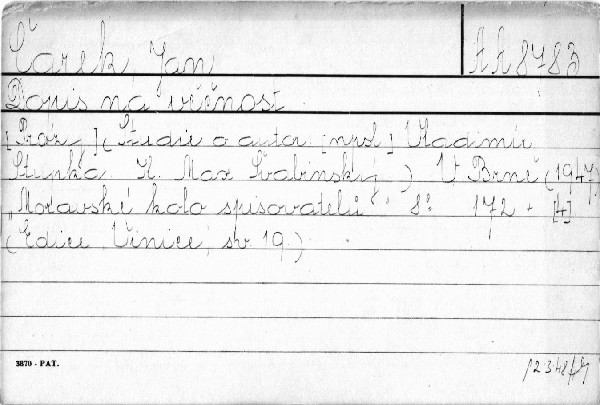 Čarek Jan
AA 8783
Dopis na věčnost.
[Próz.] (Studie o autor. [naps.] Vladimír
Stupka. Il. Max Švabinský.) V Brně (1947).
„Moravské kolo spisovatelů“ 8° 172 + [4]
(Edice Vinice, sv. 19.)
3870 - PAT.